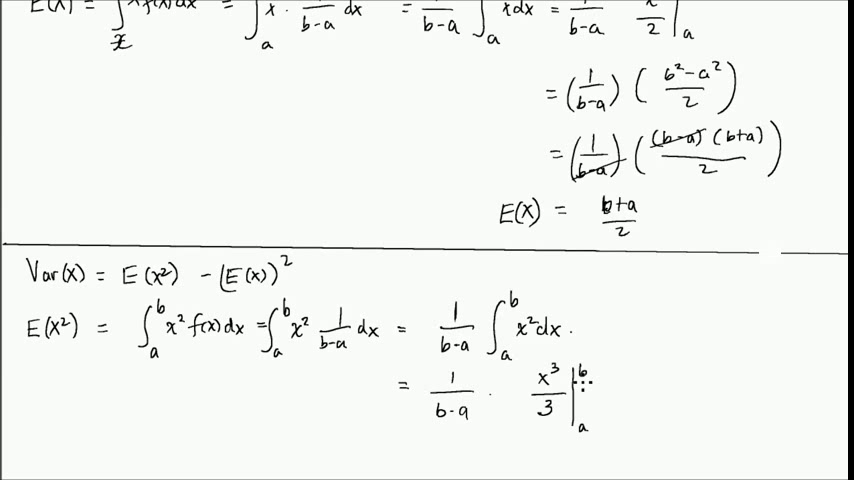 E(X) = ∫ x f(x) dx = ∫ₐ x · 1/(b-a) dx = 1/(b-a) ∫ₐ x dx = 1/(b-a) x/2 |ₐ
= (1/(b-a)) ((b²-a²)/2)
= (1/(b-a)) ((b-a)(b+a)/2)
E(X) = (b+a)/2
Var(X) = E(X²) - (E(X))²
E(X²) = ∫ₐᵇ x² f(x) dx = ∫ₐᵇ x² 1/(b-a) dx = 1/(b-a) ∫ₐᵇ x² dx.
= 1/(b-a) · x³/3 |ₐᵇ